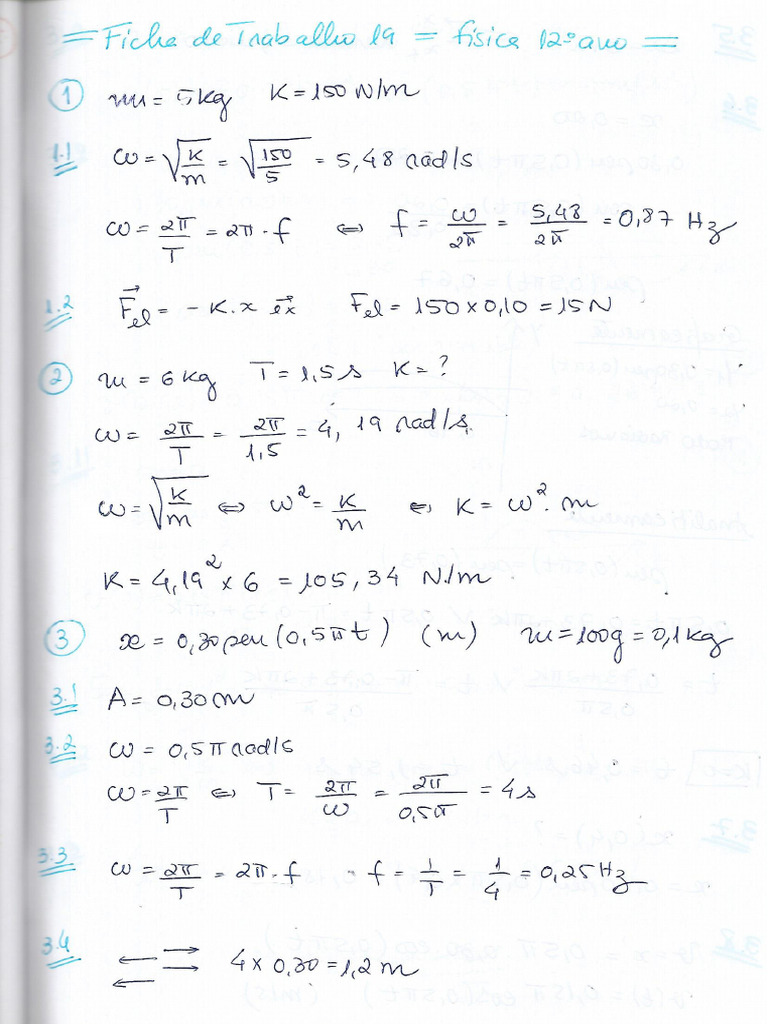 = Ficha de Trabalho 19 = física 12º ano =
① m = 5kg K = 150 N/m
1.1 ω = √(K/m) = √(150/5) = 5,48 rad/s
ω = 2π/T = 2π · f ⇔ f = ω/2π = 5,48/2π = 0,87 Hz
1.2 F⃗el = -K.x e⃗x Fel = 150 x 0,10 = 15 N
② m = 6kg T = 1,5 s K = ?
ω = 2π/T = 2π/1,5 = 4,19 rad/s
ω = √(K/m) ⇔ ω² = K/m ⇔ K = ω². m
K = 4,19² x 6 = 105,34 N/m
③ x = 0,30 sen (0,5πt) (m) m = 100g = 0,1kg
3.1 A = 0,30 m
3.2 ω = 0,5π rad/s
ω = 2π/T ⇔ T = 2π/ω = 2π/0,5π = 4 s
3.3 ω = 2π/T = 2π · f f = 1/T = 1/4 = 0,25 Hz
3.4 ← → ← → 4 x 0,30 = 1,2 m